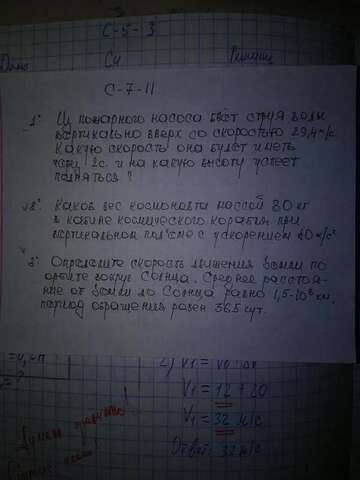 С-5-3
Дано
Си
Решение
С-7-11
1° Из пожарного насоса бьёт струя воды
вертикально вверх со скоростью 29,4 м/с.
Какую скорость она будет иметь
через 2с. и на какую высоту успеет
подняться?
2° Каков вес космонавта массой 80 кг
в кабине космического корабля при
вертикальном подъёме с ускорением 40 м/с²
3° Определите скорость движения Земли по
орбите вокруг Солнца. Среднее расстоя-
ние от Земли до Солнца равно 1,5·10⁸ км,
период обращения равен 365 сут.
=?
V₁ =
V₁ = 12 + 20
V₁ = 32 м/с
Ответ: 32 м/с
Думай